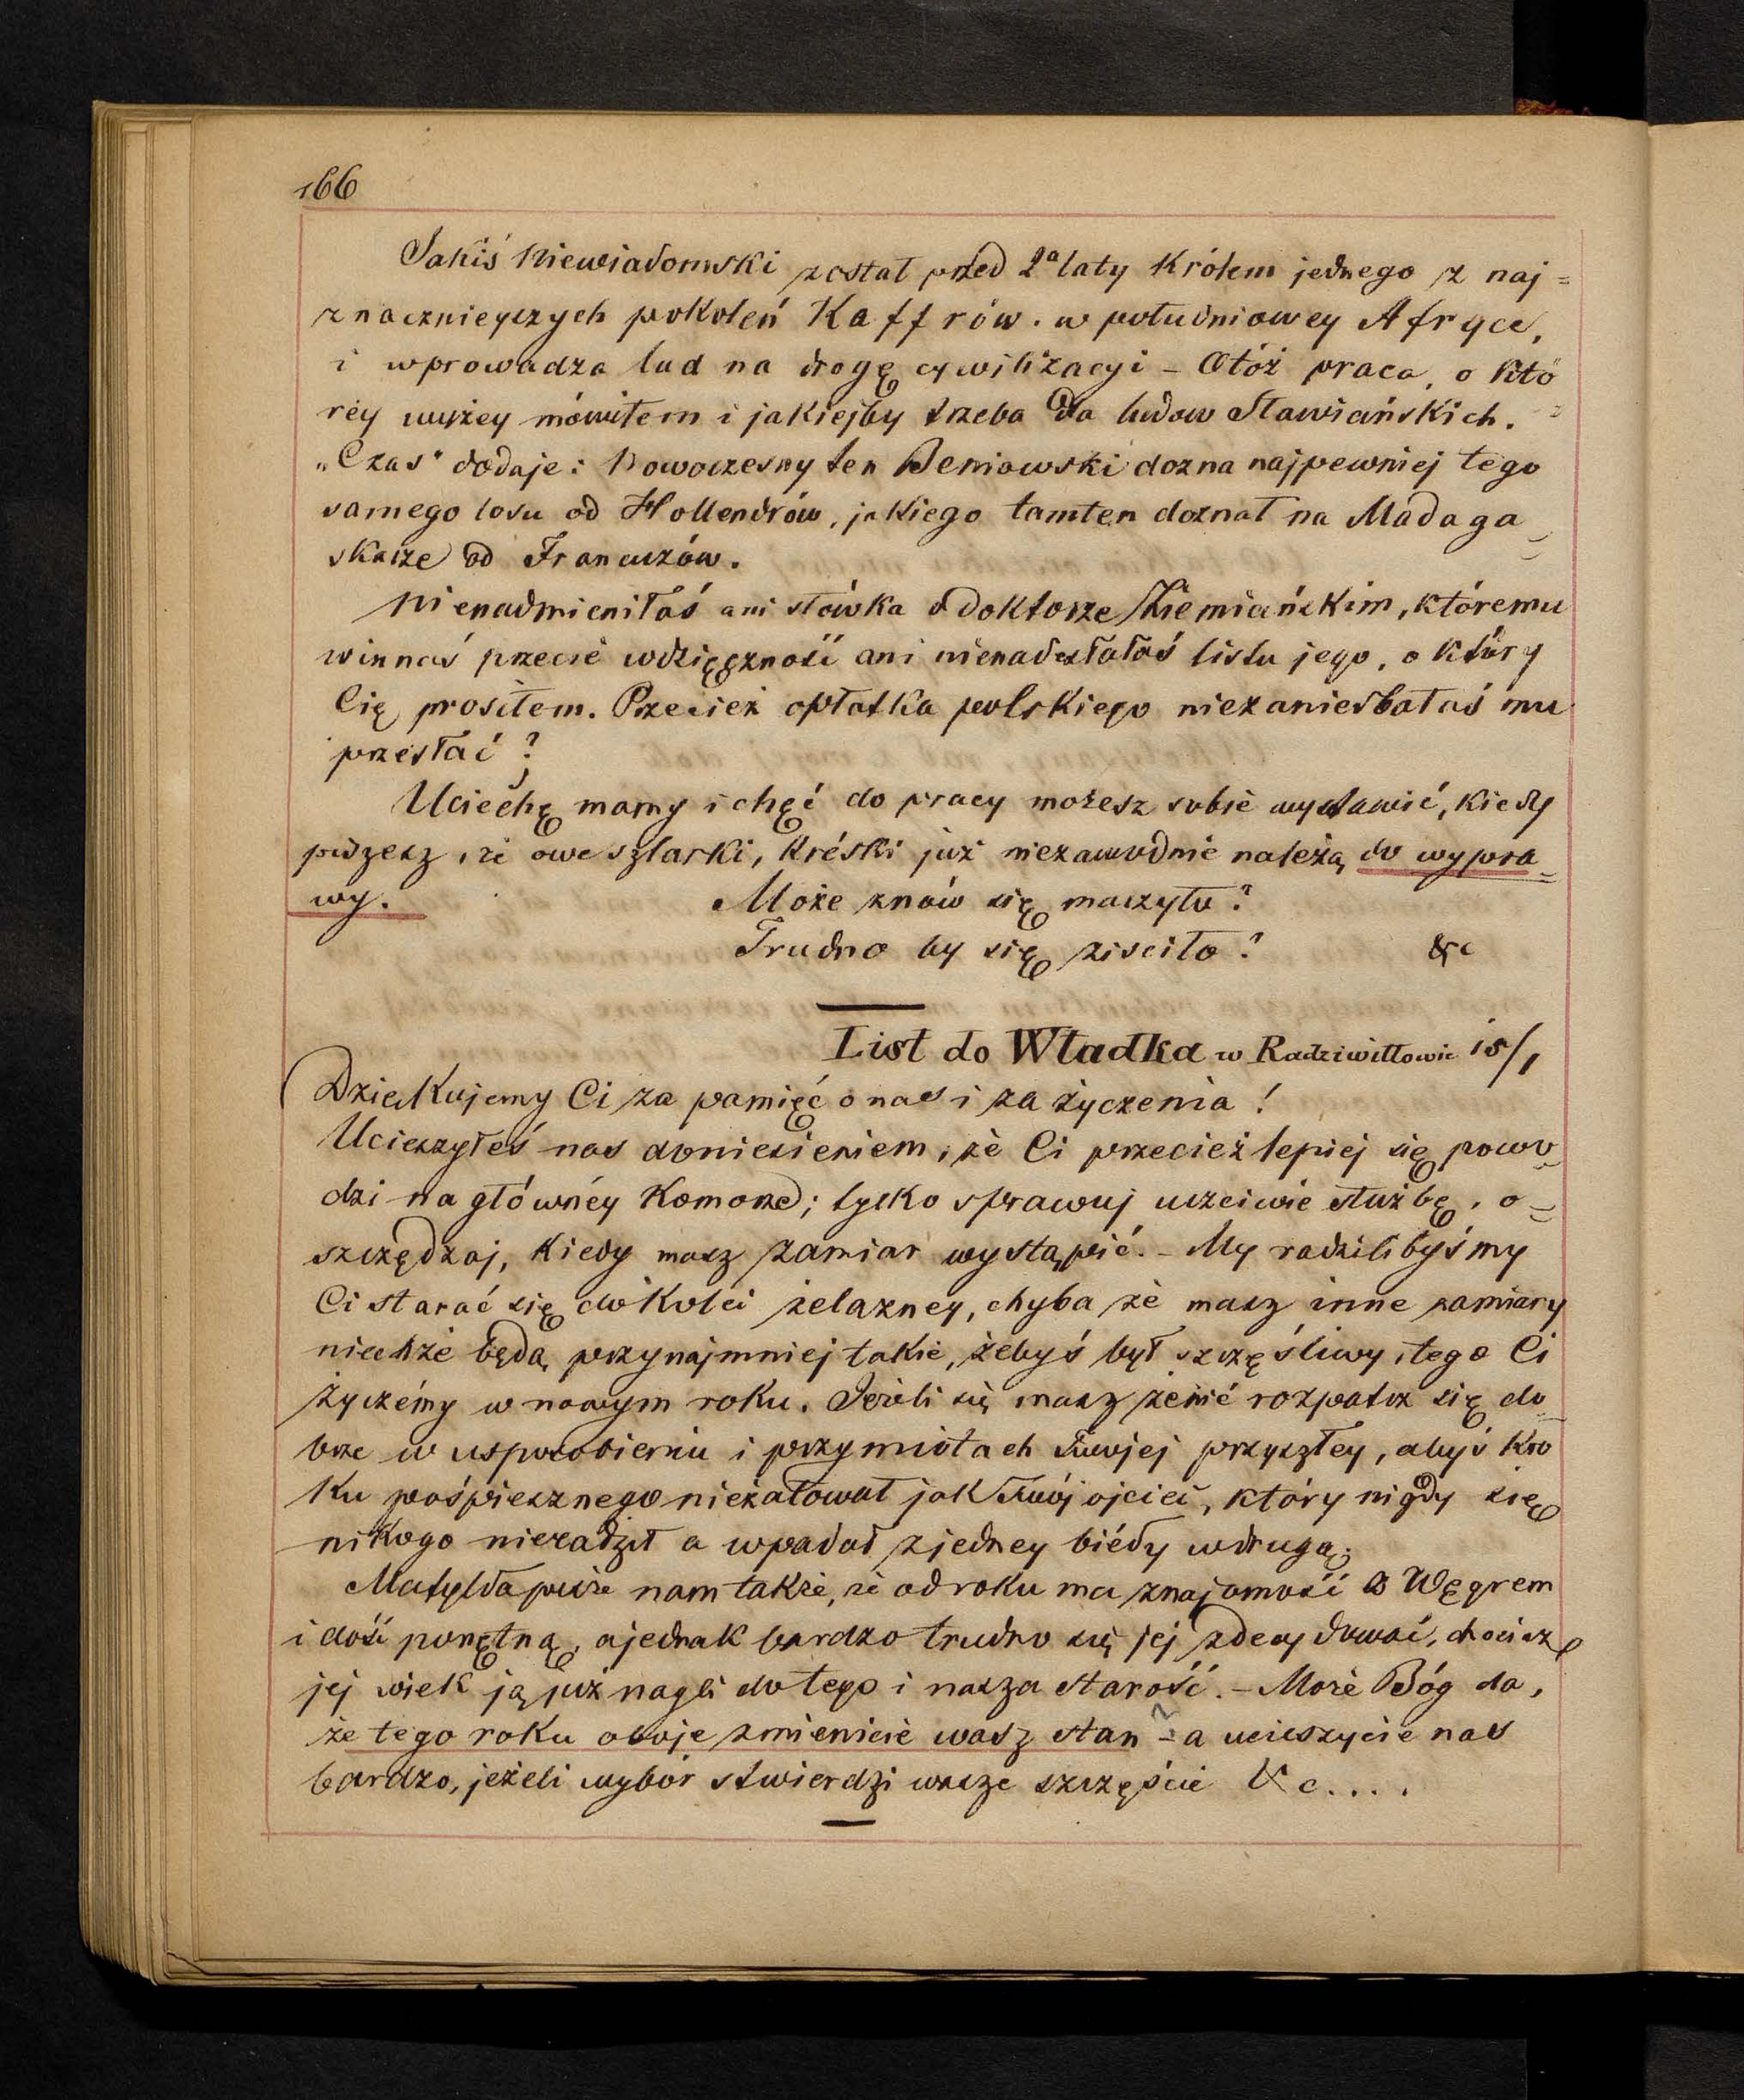 166
Jakiś Niewiadomski został przed 2ª laty Królem jednego z naj=
znacznieyszych pokoleń Kaffrów. w południowey Afryce,
i wprowadza lud na drogę cywilizacyi – Otóż praca, o któ
réy wyżey mówiłem i jakiejby trzeba dla ludow Sławiańskich.
„Czas" dodaje: Nowoczesny ten Beniowski dozna najpewniej tego
samego losu od Hollendrów, jakiego tamten doznał na Madaga=
skarze od Francuzów.
Nienadmieniłaś ani słówka o doktorze Ziemiańskim, któremu
winnaś przecie wdzięczność ani nienadesłałaś listu jego, o który
Cię prosiłem. Przecież opłatka polskiego niezaniedbałaś mu
przesłać?
Uciechę mamy i chęć do pracy możesz sobie wystawić, kiedy
piszesz, że owe szlarki, kréski już niezawodnie należą do wypra=
wy. Może znów się maczyto?
Trudno by się ziściło? &c
List do Władka w Radziwiłłowie 15/1
Dziękujemy Ci za pamięć o nas i za życzenia!
Ucieszyłeś nas doniesieniem, że Ci przecież lepiej się powo=
dzi na głównéy Komorze; tylko sprawuj uczciwie służbę, o=
szczędzaj, kiedy masz zamiar wystąpić. – My radzilibyśmy
Ci starać się do kolei żelazney, chyba że masz inne zamiary
niechże będą przynajmniej takie, żebyś był szczęśliwy, tego Ci
życzémy w nowym roku. Jeżeli się masz żenić rozpatrz się do=
brze w usposobieniu i przymiotach Twojej przyszłey, abyś kro
ku pośpiesznego nieżałował jak Twój ojciec, który nigdy się
nikogo nieradził a wpadał z jedney biédy w drugą.
Matylda pisze nam także, że od roku ma znajomość z Węgrem
i dość ponętną, a jednak bardzo trudno się jej zdecydować, chociaż
jej wiek ją już nagli do tego i nasza starość. – Może Bóg da,
że tego roku oboje zmienicie wasz stan – a ucieszycie nas
bardzo, jeżeli wybór stwierdzi wasze szczęście &c....